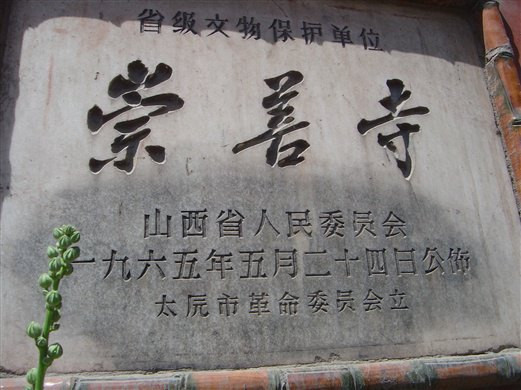 省级文物保护单位
崇善寺
山西省人民委员会
一九六五年五月二十四日公饰
太阮市革命委员会立